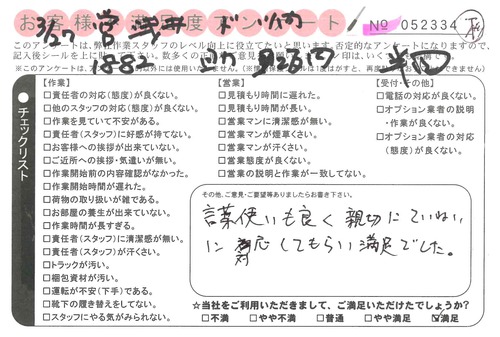 お客様満足度アンケート
No 052334
3/27
記入しシールを上に
●チェックリスト
【作業】
□責任者の対応(態度)が良くない。
□他のスタッフの対応(態度)が良くない。
□作業を見ていて不安がある。
□責任者(スタッフ)に好感が持てない。
□お客様への挨拶が出来ていない。
□ご近所への挨拶・気遣いが無い。
□作業開始前の内容確認がなかった。
□作業開始時間が遅れた。
□荷物の取り扱いが雑である。
□お部屋の養生が出来ていない。
□作業時間が長すぎる。
□責任者(スタッフ)に清潔感が無い。
□責任者(スタッフ)が汗くさい。
□トラックが汚い。
□梱包資材が汚い。
□運転が不安(下手)である。
□靴下の履き替えをしてない。
□スタッフにやる気がみられない。
【営業】
□見積もり時間に遅れた。
□見積もり時間が長い。
□営業マンに清潔感が無い。
□営業マンが煙草くさい。
□営業マンが汗くさい。
□営業態度が良くない。
□営業の説明と作業が一致してない。
【受付・その他】
□電話の対応が良くない。
□オプション業者の説明
・作業が良くない。
□オプション業者の対応
(態度)が良くない。
その他、ご意見・ご要望等ありましたらお書き下さい。
言葉使いも良く親切にていねい
に対応してもらい満足でした。
☆当社をご利用いただきまして、ご満足いただけたでしょうか?
□不満 □やや不満 □普通 □やや満足 ☑満足